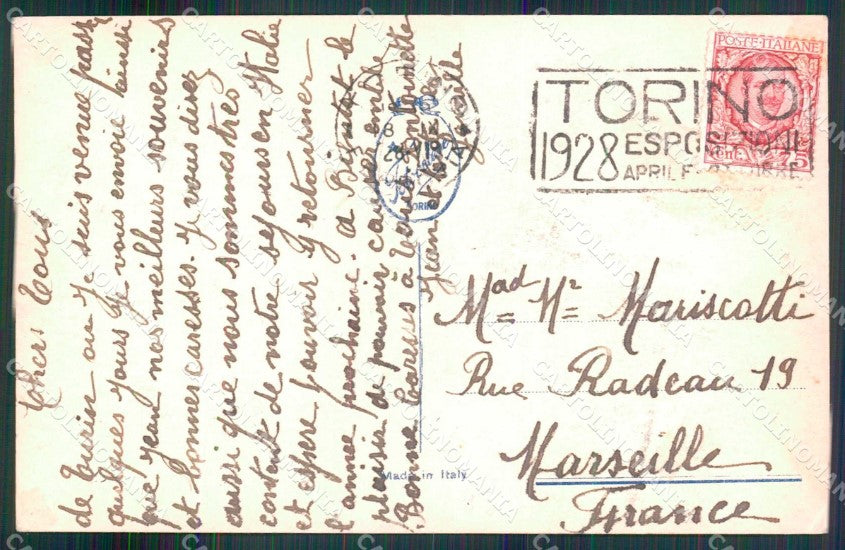 Chers Tous
de Turin ou je suis venue passer
quelques jours je vous envoie ainsi
que Jean nos meilleurs souvenirs
et bonnes caresses. J vous direz
aussi que nous sommes tres
content de notre sejours en Italie
et espere pouvoir y retourner
l'année prochaine. a Bientot le
plaisir de pouvoir causer ensemble
Bonne Caresses à
Jean et
POSTE ITALIANE
TORINO
1928 ESPOSIZIONI
APRILE
TORINO
Mad = Mr = Mariscotti
Rue Radeau 19
Marseille
France
Made in Italy
CARTOLINOMANIA